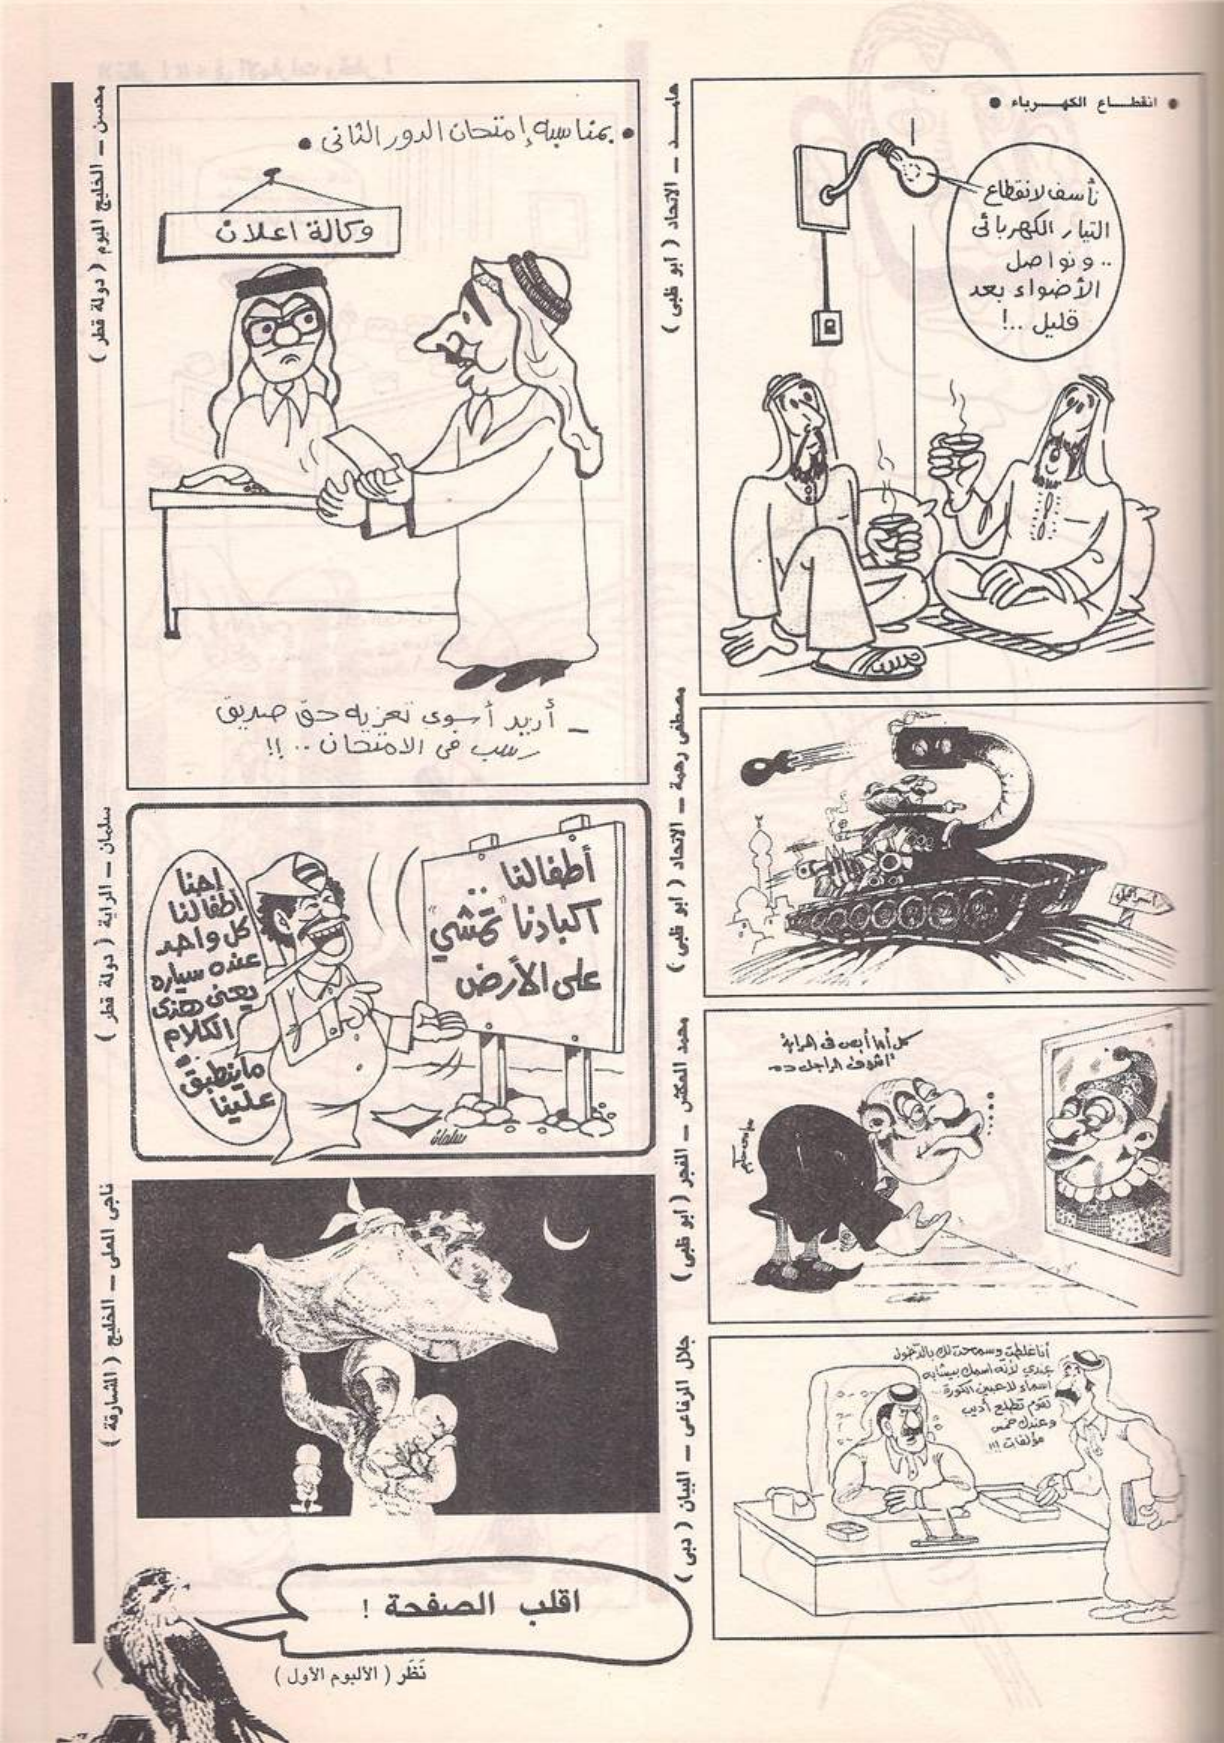 ● انقطـــاع الكهـــرباء ●
نأسف لانقطاع
التيار الكهربائى
.. و نواصل
الأضواء بعد
قليل ..!
حامـــد ــ الاتحاد ( ابو ظبى )
● بمناسبه إمتحان الدور الثانى ●
وكالة اعلان
ــ أريد أسوى تعزيه حق صديق
رسب فى الامتحان .. !!
محسن ــ الخليج اليوم ( دولة قطر )
مصطفى رحمة ــ الاتحاد ( ابو ظبى )
إسرائيل
أطفالنا ..
اكبادنا "تمشي"
على الأرض
احنا
اطفالنا
كل واحد
عنده سياره
يعنى هذى
الكلام
ماينطبق
علينا
سلمان
سلمان ــ الراية ( دولة قطر )
كل أما أبص فى المراية
أشوف الراجل ده
محمد العكش ــ الفجر ( ابو ظبى )
ناجى العلى ــ الخليج ( الشارقة )
أنا غلطت وسمحت لك بالدخول
عندي لأنه اسمك بيشابه
اسماء لاعبين الكورة
تقوم تطلع أديب
وعندك خمس
مؤلفات !!!
جلال الرفاعى ــ البيان ( دبى )
اقلب الصفحة !
نَظَر ( الألبوم الأول )